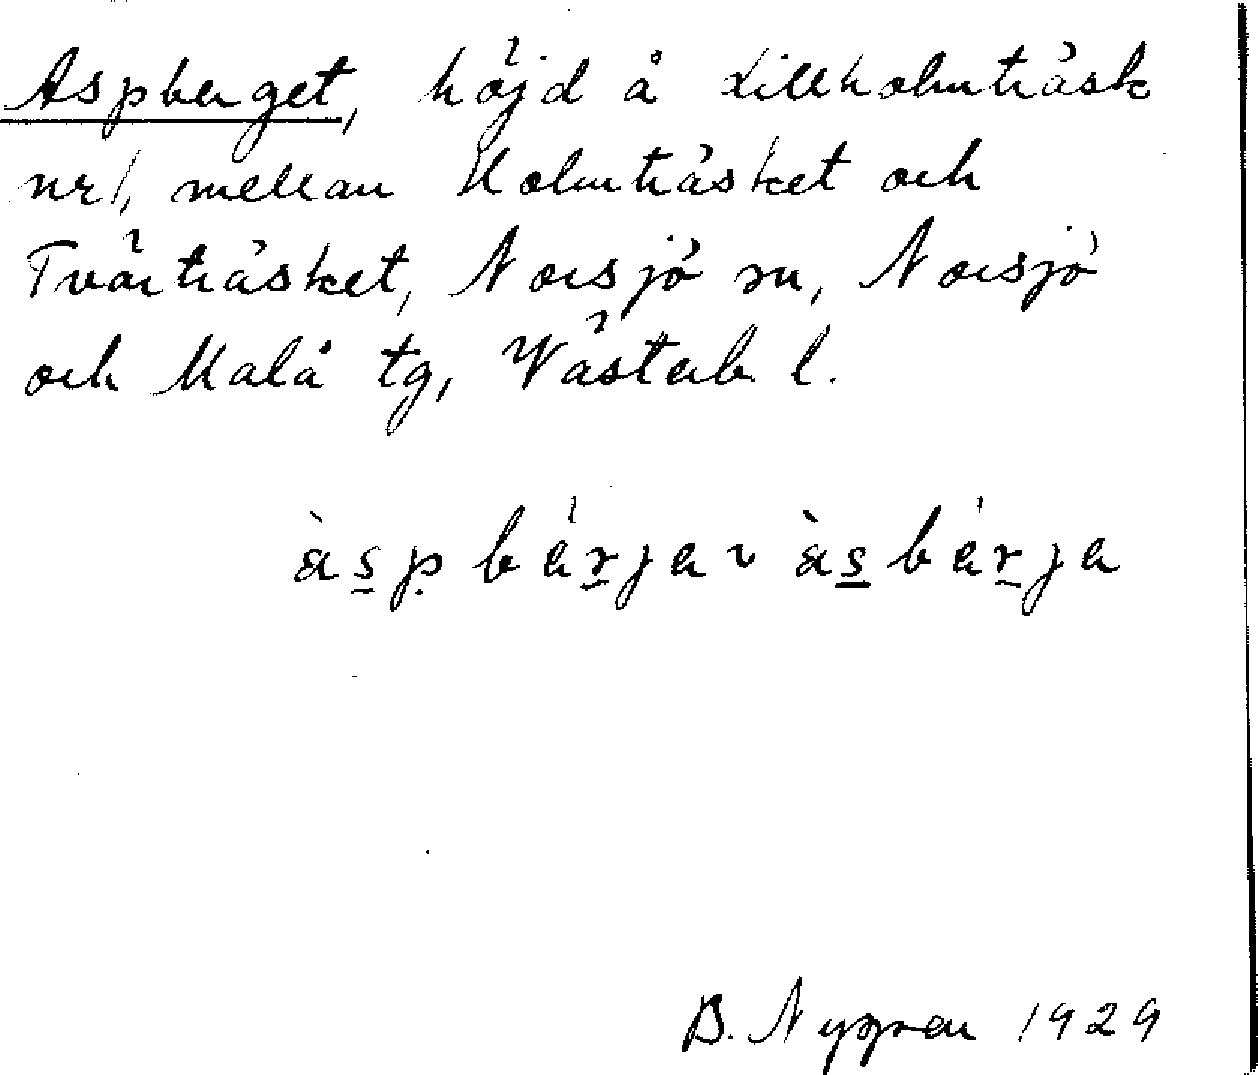 Aspberget, höjd å Lillholmträsk
nr 1, mellan Holmträsket och
Tvärträsket, Norsjö sn, Norsjö
och Malå tg, Västerb. l.
às̱p̣bér̠ja ∿ às̱bér̠ja
B. Nygren 1929